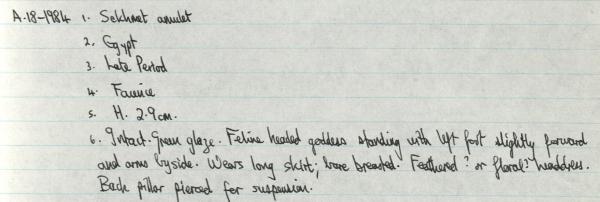 A.18-1984 1. Sekhmet amulet
2. Egypt
3. Late Period
4. Faience
5. H. 2.9cm.
6. Intact. Green glaze. Feline headed goddess standing with left foot slightly forward
and arms by side. Wears long skirt; bare breasted. Feathered? or floral? headdress.
Back pillar pierced for suspension.